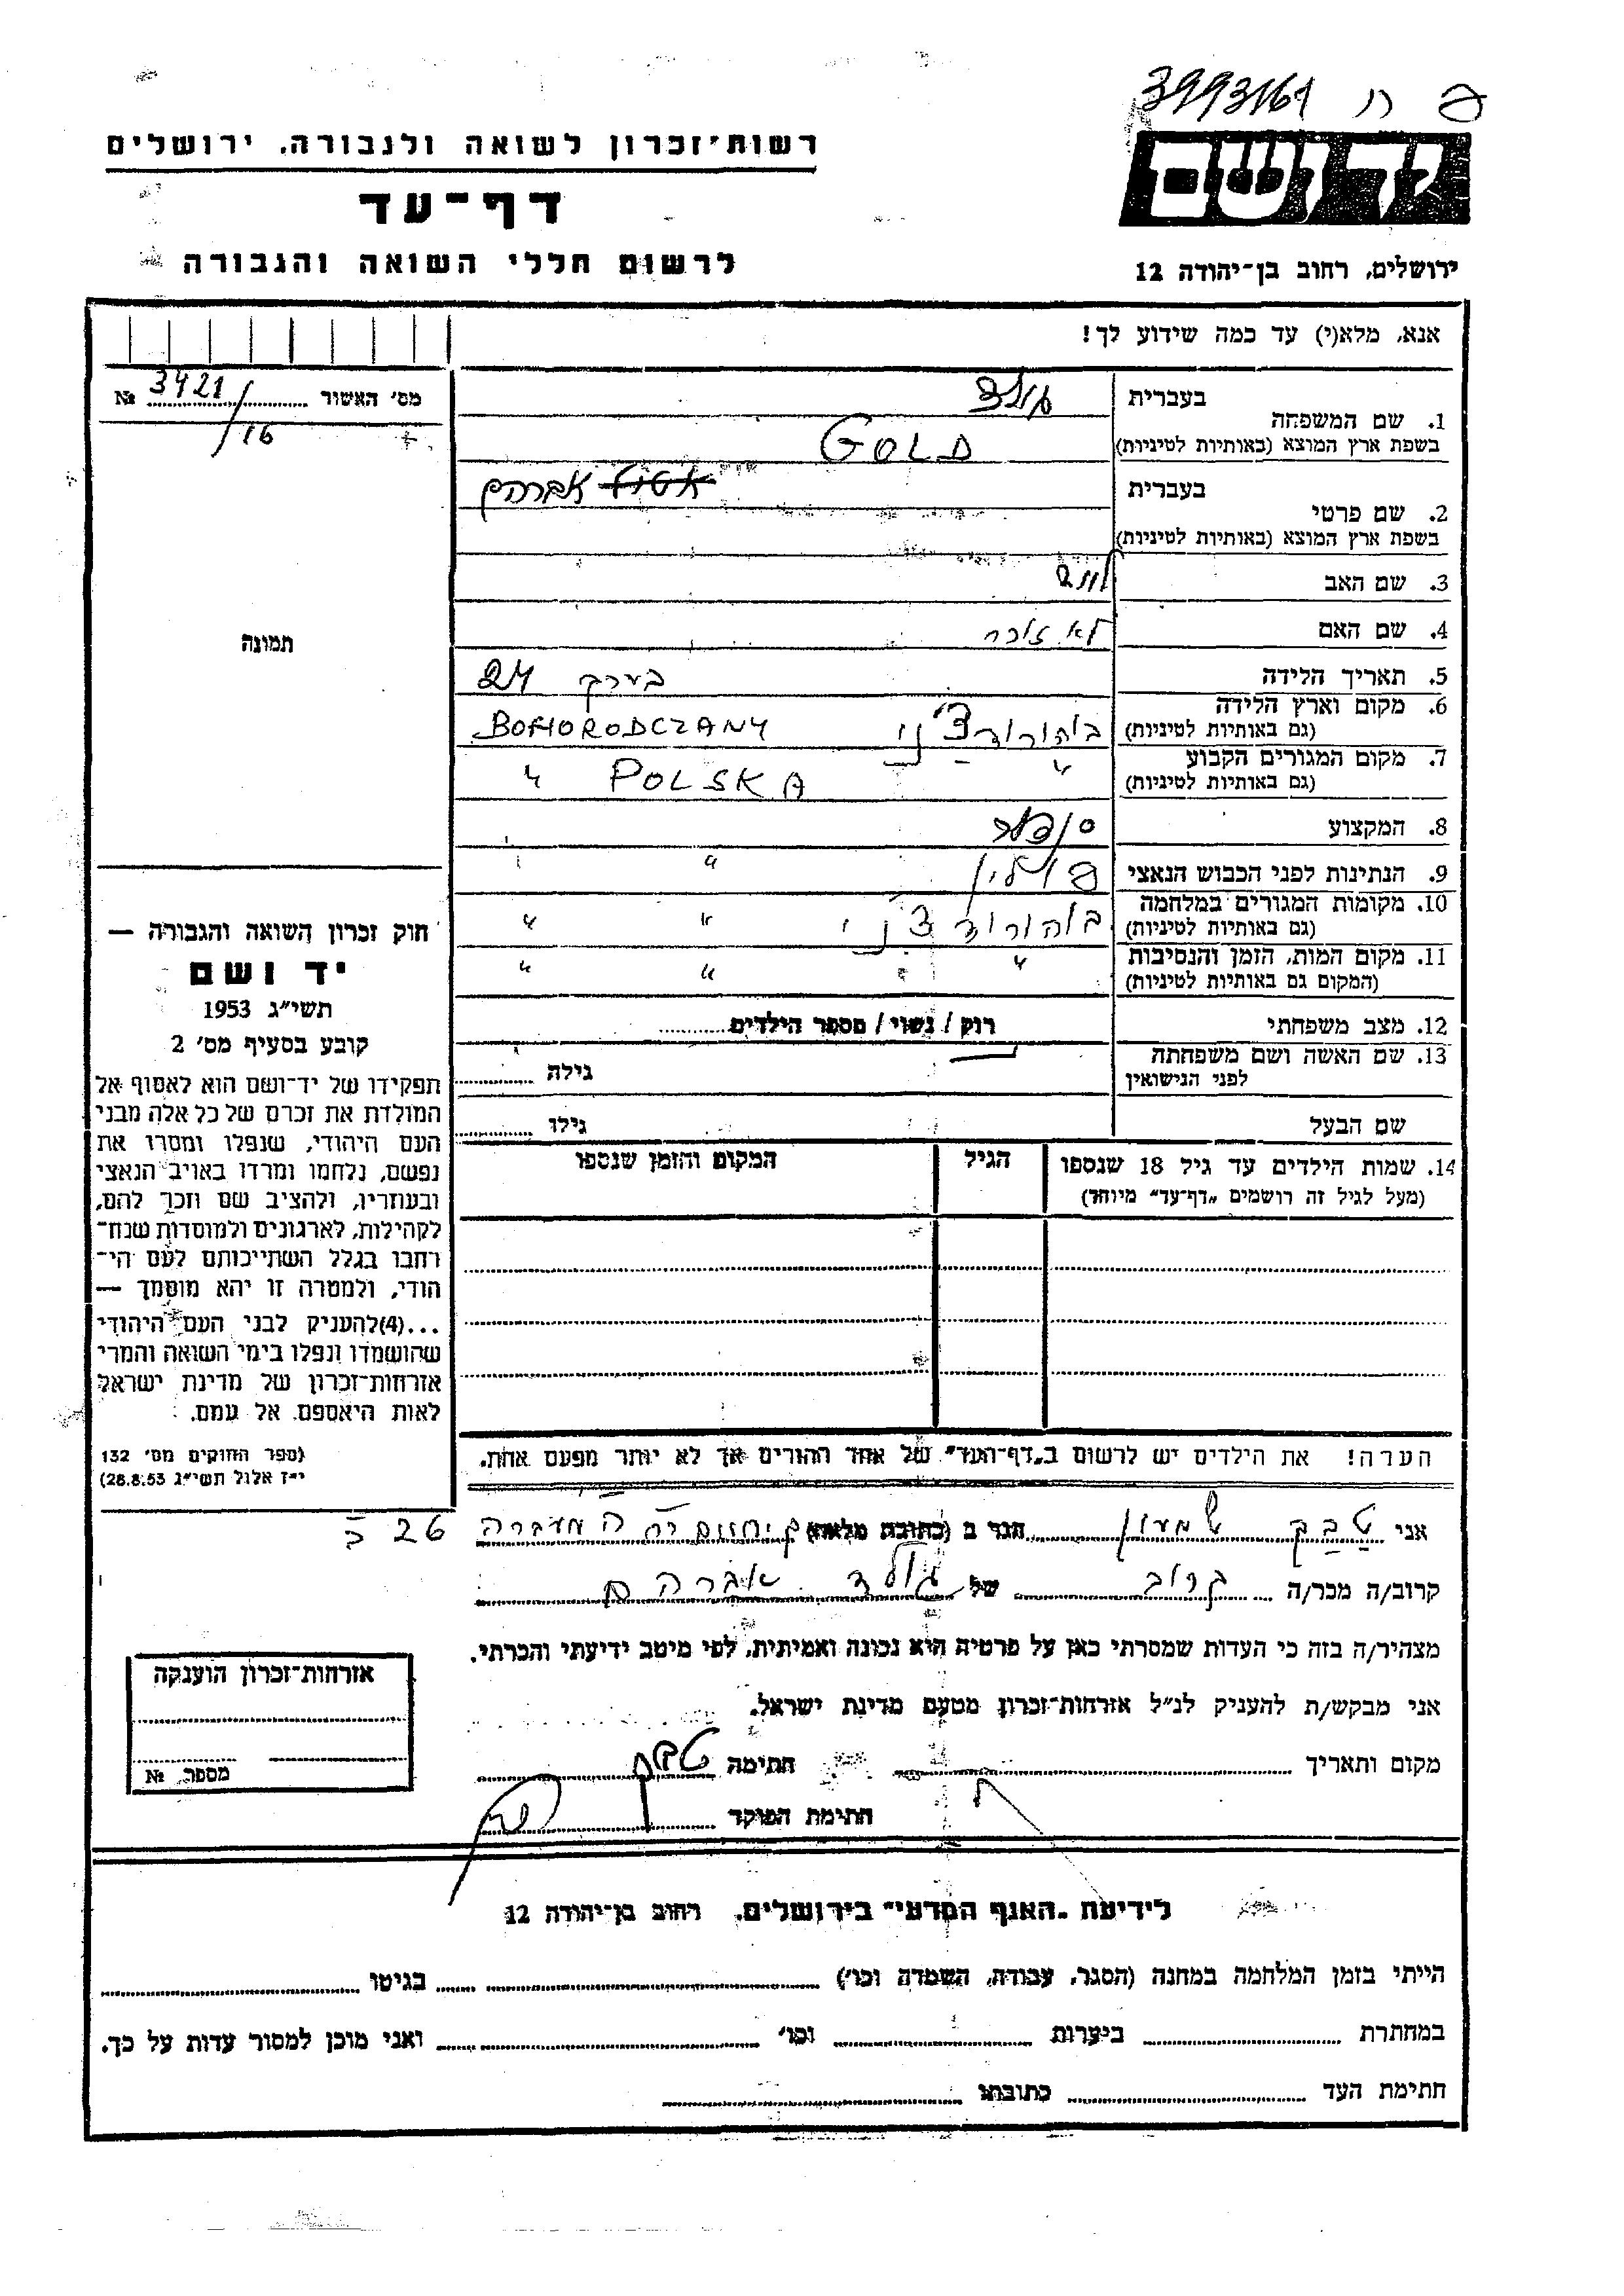 3993161
רשות־זכרון לשואה ולגבורה, ירושלים
ידושם
דף־עד
לרשום חללי השואה והגבורה
ירושלים, רחוב בן־יהודה 12
אנא, מלא(י) עד כמה שידוע לך!
מס׳ האשור № 3421/16
1. שם המשפחה
בעברית גולד
בשפת ארץ המוצא (באותיות לטיניות) GOLD
2. שם פרטי
בעברית אברהם
בשפת ארץ המוצא (באותיות לטיניות)
3. שם האב
4. שם האם לא זוכר
5. תאריך הלידה בערך 24
6. מקום וארץ הלידה
(גם באותיות לטיניות) בוהורודצ׳ני BOHORODCZANY
7. מקום המגורים הקבוע
(גם באותיות לטיניות) " POLSKA "
8. המקצוע
9. הנתינות לפני הכבוש הנאצי פולין "
10. מקומות המגורים במלחמה
(גם באותיות לטיניות) בוהורודצ׳ני " "
11. מקום המות, הזמן והנסיבות
(המקום גם באותיות לטיניות) " " " "
12. מצב משפחתי רוק / נשוי / מספר הילדים
13. שם האשה ושם משפחתה
לפני הנישואין גילה
שם הבעל גילו
14. שמות הילדים עד גיל 18 שנספו
(מעל לגיל זה רושמים „דף־עד״ מיוחד)
הגיל
המקום והזמן שנספו
תמונה
חוק זכרון השואה והגבורה —
יד ושם
תשי״ג 1953
קובע בסעיף מס׳ 2
תפקידו של יד־ושם הוא לאסוף אל
המולדת את זכרם של כל אלה מבני
העם היהודי, שנפלו ומסרו את
נפשם, נלחמו ומרדו באויב הנאצי
ובעוזריו, ולהציב שם וזכר להם,
לקהילות, לארגונים ולמוסדות שנח־
רבו בגלל השתייכותם לעם הי־
הודי, ולמטרה זו יהא מוסמך —
...(4)להעניק לבני העם היהודי
שהושמדו ונפלו בימי השואה והמרי
אזרחות־זכרון של מדינת ישראל
לאות היאספם אל עמם.
(ספר החוקים מס׳ 132
י״ז אלול תשי״ג 28.8.53)
הערה! את הילדים יש לרשום ב„דף־העד״ של אחד ההורים אך לא יותר מפעם אחת.
אני טבק שמעון הגר ב (כתובת מלאה) המעברה 26
קרוב/ה מכר/ה קרוב של גולד אברהם
מצהיר/ה בזה כי העדות שמסרתי כאן על פרטיה היא נכונה ואמיתית, לפי מיטב ידיעתי והכרתי.
אני מבקש/ת להעניק לנ״ל אזרחות־זכרון מטעם מדינת ישראל.
מקום ותאריך חתימה טבק
חתימת הפוקד
אזרחות־זכרון הוענקה
מספר №
לידיעת „האגף המדעי״ בירושלים, רחוב בן־יהודה 12
הייתי בזמן המלחמה במחנה (הסגר, עבודה, השמדה וכו׳) בגיטו
במחתרת ביערות וכו׳ ואני מוכן למסור עדות על כך.
חתימת העד כתובתו